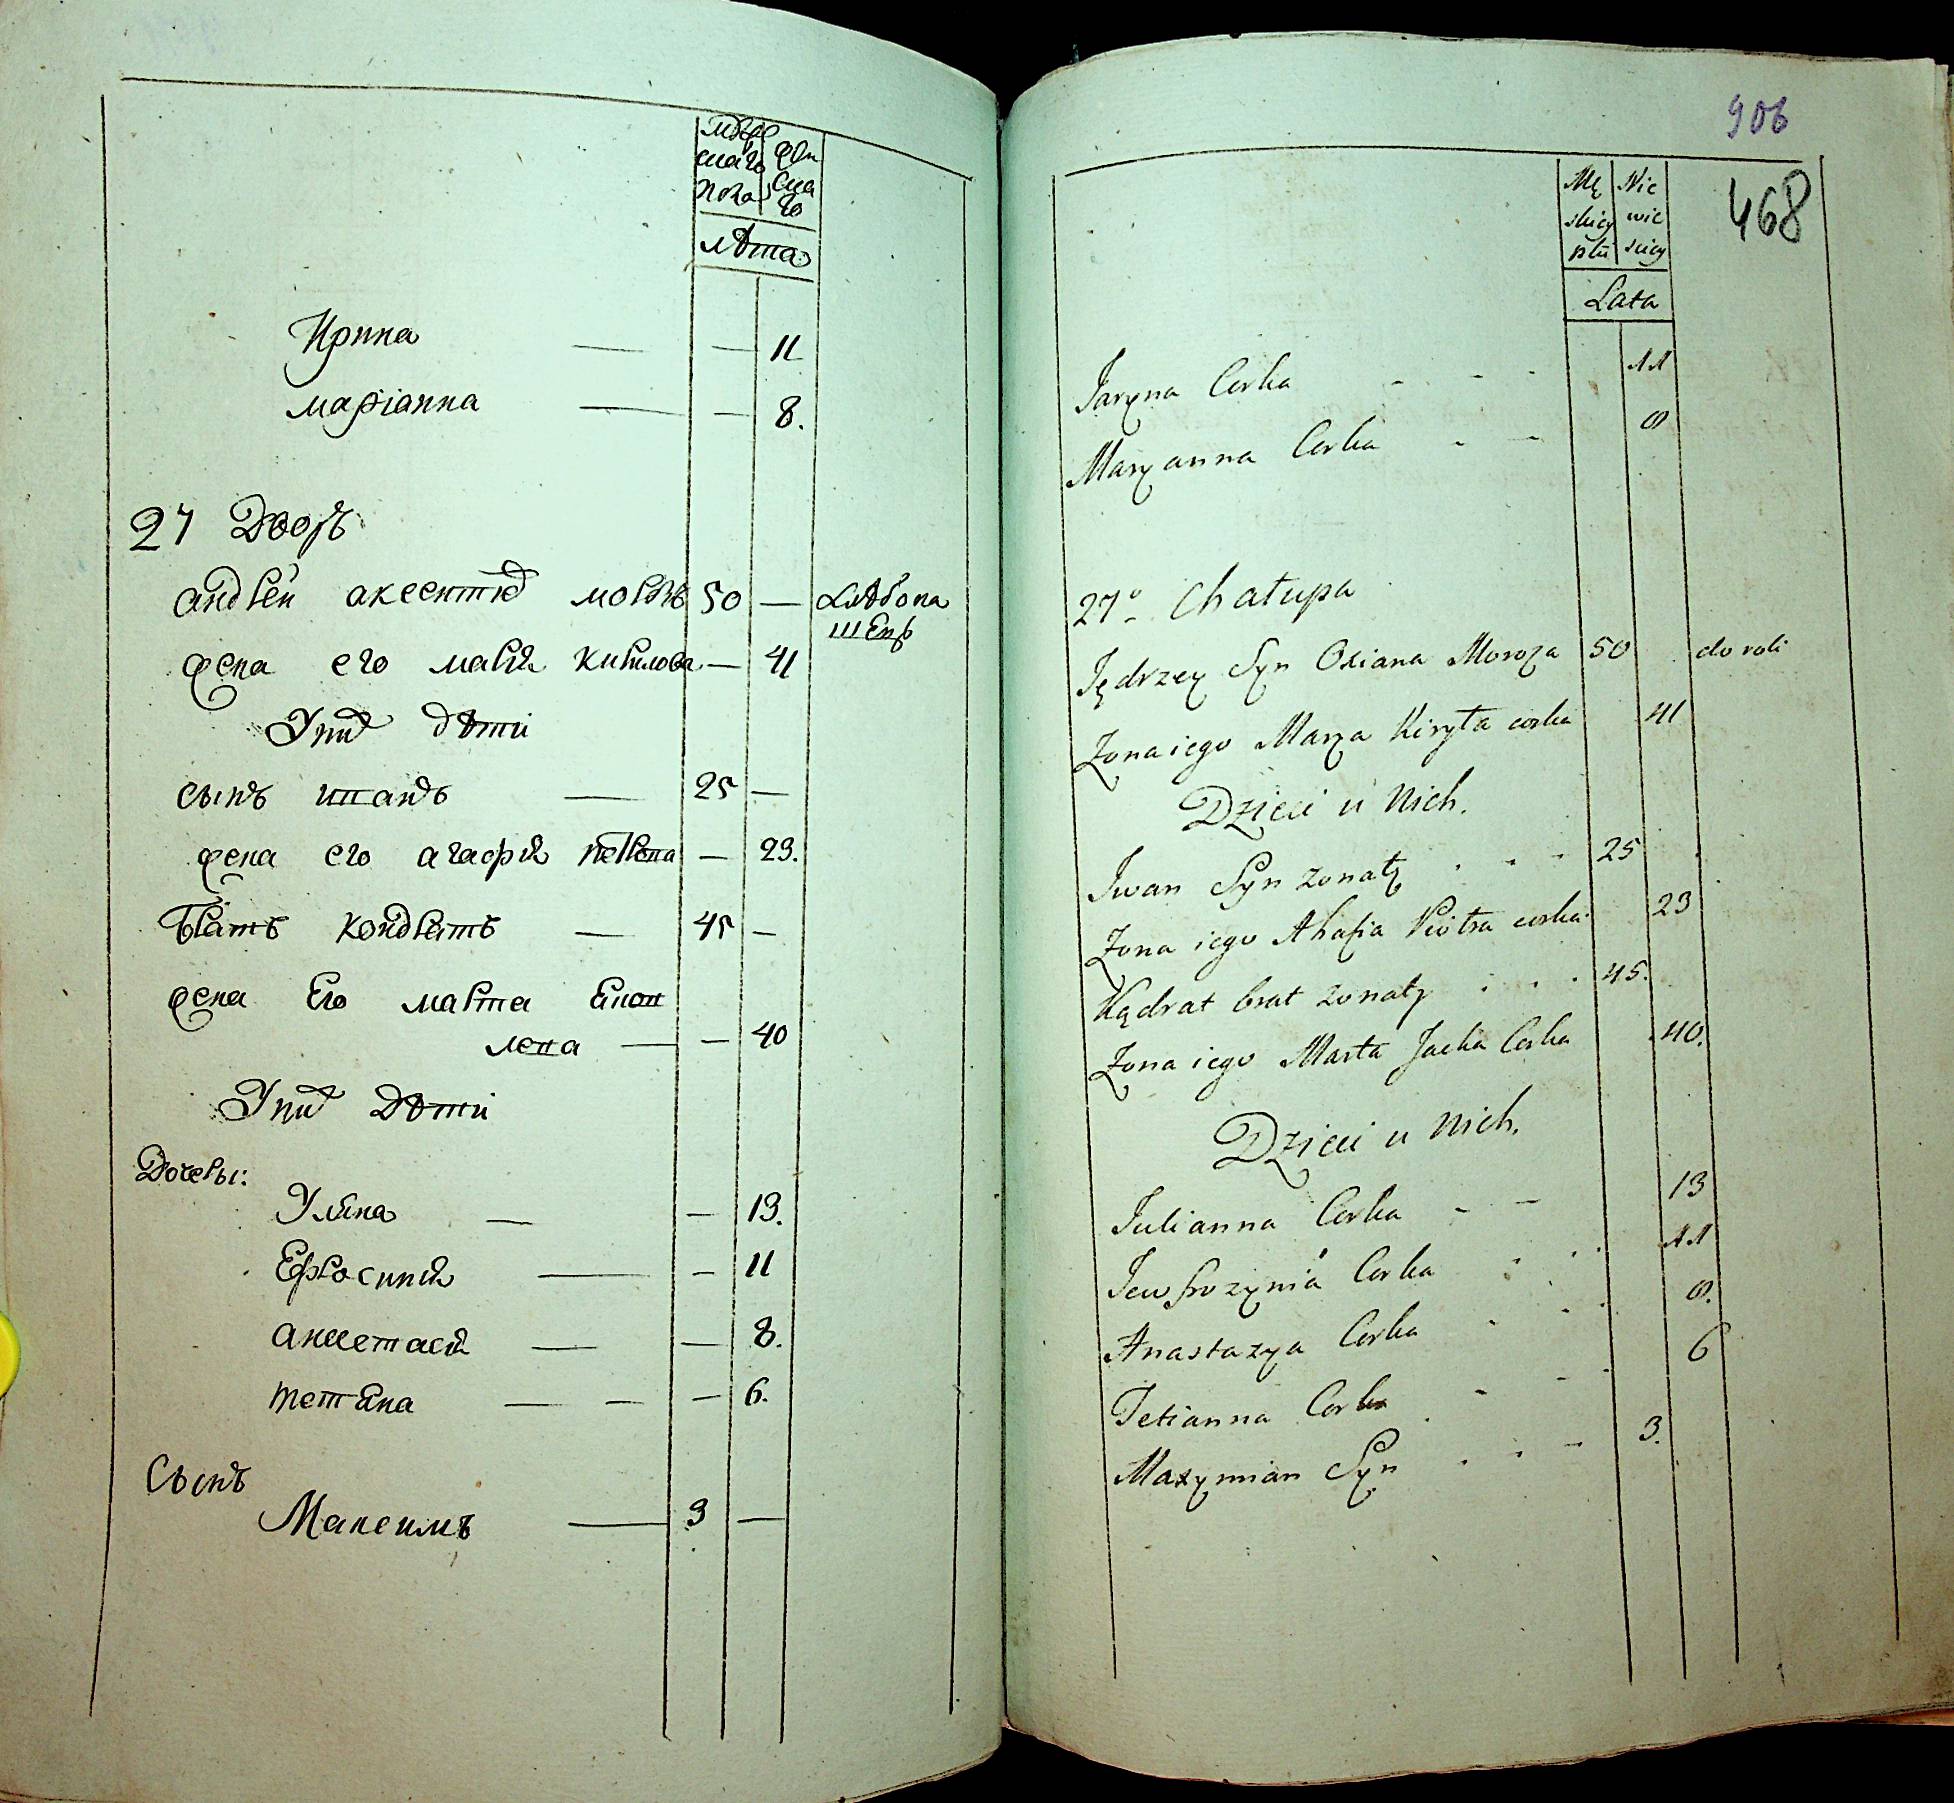 мужс
скаго
пола
жен
ска
го
лѣта
Ирина — — 11
маріанна — — 8.
27 Дворъ
андрей аксентіев морозъ 50 — хлѣбопа
шецъ
жена его марія кирилова — 41
У них дѣти
сынъ иванъ — 25 —
жена его агафия петрова — 23.
братъ кондратъ — 45 —
жена Его марта
— — 40
У них дѣти
Дочери:
Уляна — — 13.
Ефросиния — — 11
анастасия — — 8.
тетяна — — — 6.
Сынъ
Максимъ — 3 —
906
468
Mę
skiey
płci
Nie
wie
sciey
Lata
Jaryna Corka - - - 11
Maryanna Corka - - 8
27° Chałupa
Jędrzey Syn Oxiana Moroza 50 do roli
Zona iego Marya Kiryła corka 41
Dzieci u Nich.
Iwan Syn zonaty . - - 25
Zona iego Ahafia Piotra corka 23
Kądrat brat zonaty . . . 45.
Zona iego Marta Jacka Corka 40.
Dzieci u Nich.
Julianna Corka - - 13
Jewfrozynia Corka . . 11
Anastazya Corka . . 8.
Tetianna Corka - - 6
Maxymian Syn . - - 3.